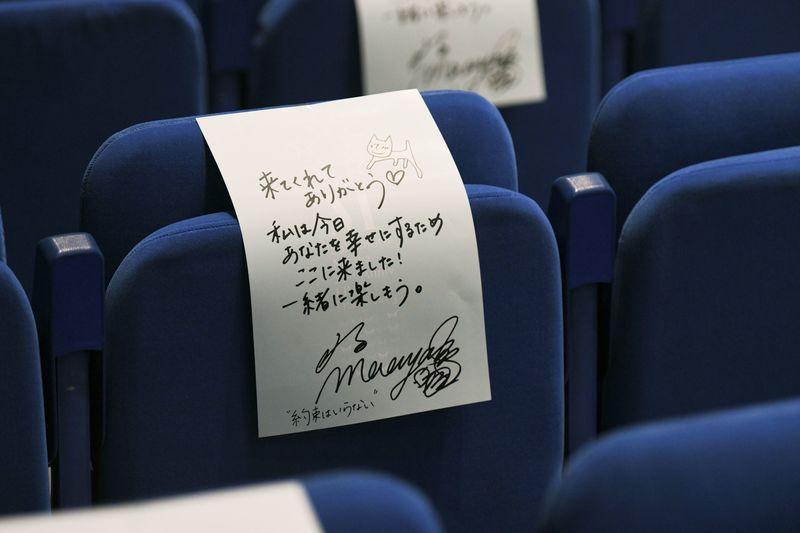 一緒に楽しもう。
来てくれて
ありがとう♡
私は今日
あなたを幸せにするため
ここに来ました!
一緒に楽しもう。
"約束はいらない"